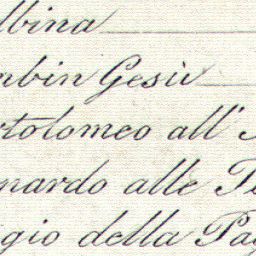 lbina
mbin Gesù
rtolomeo all'
nardo alle Te
gio della Pag